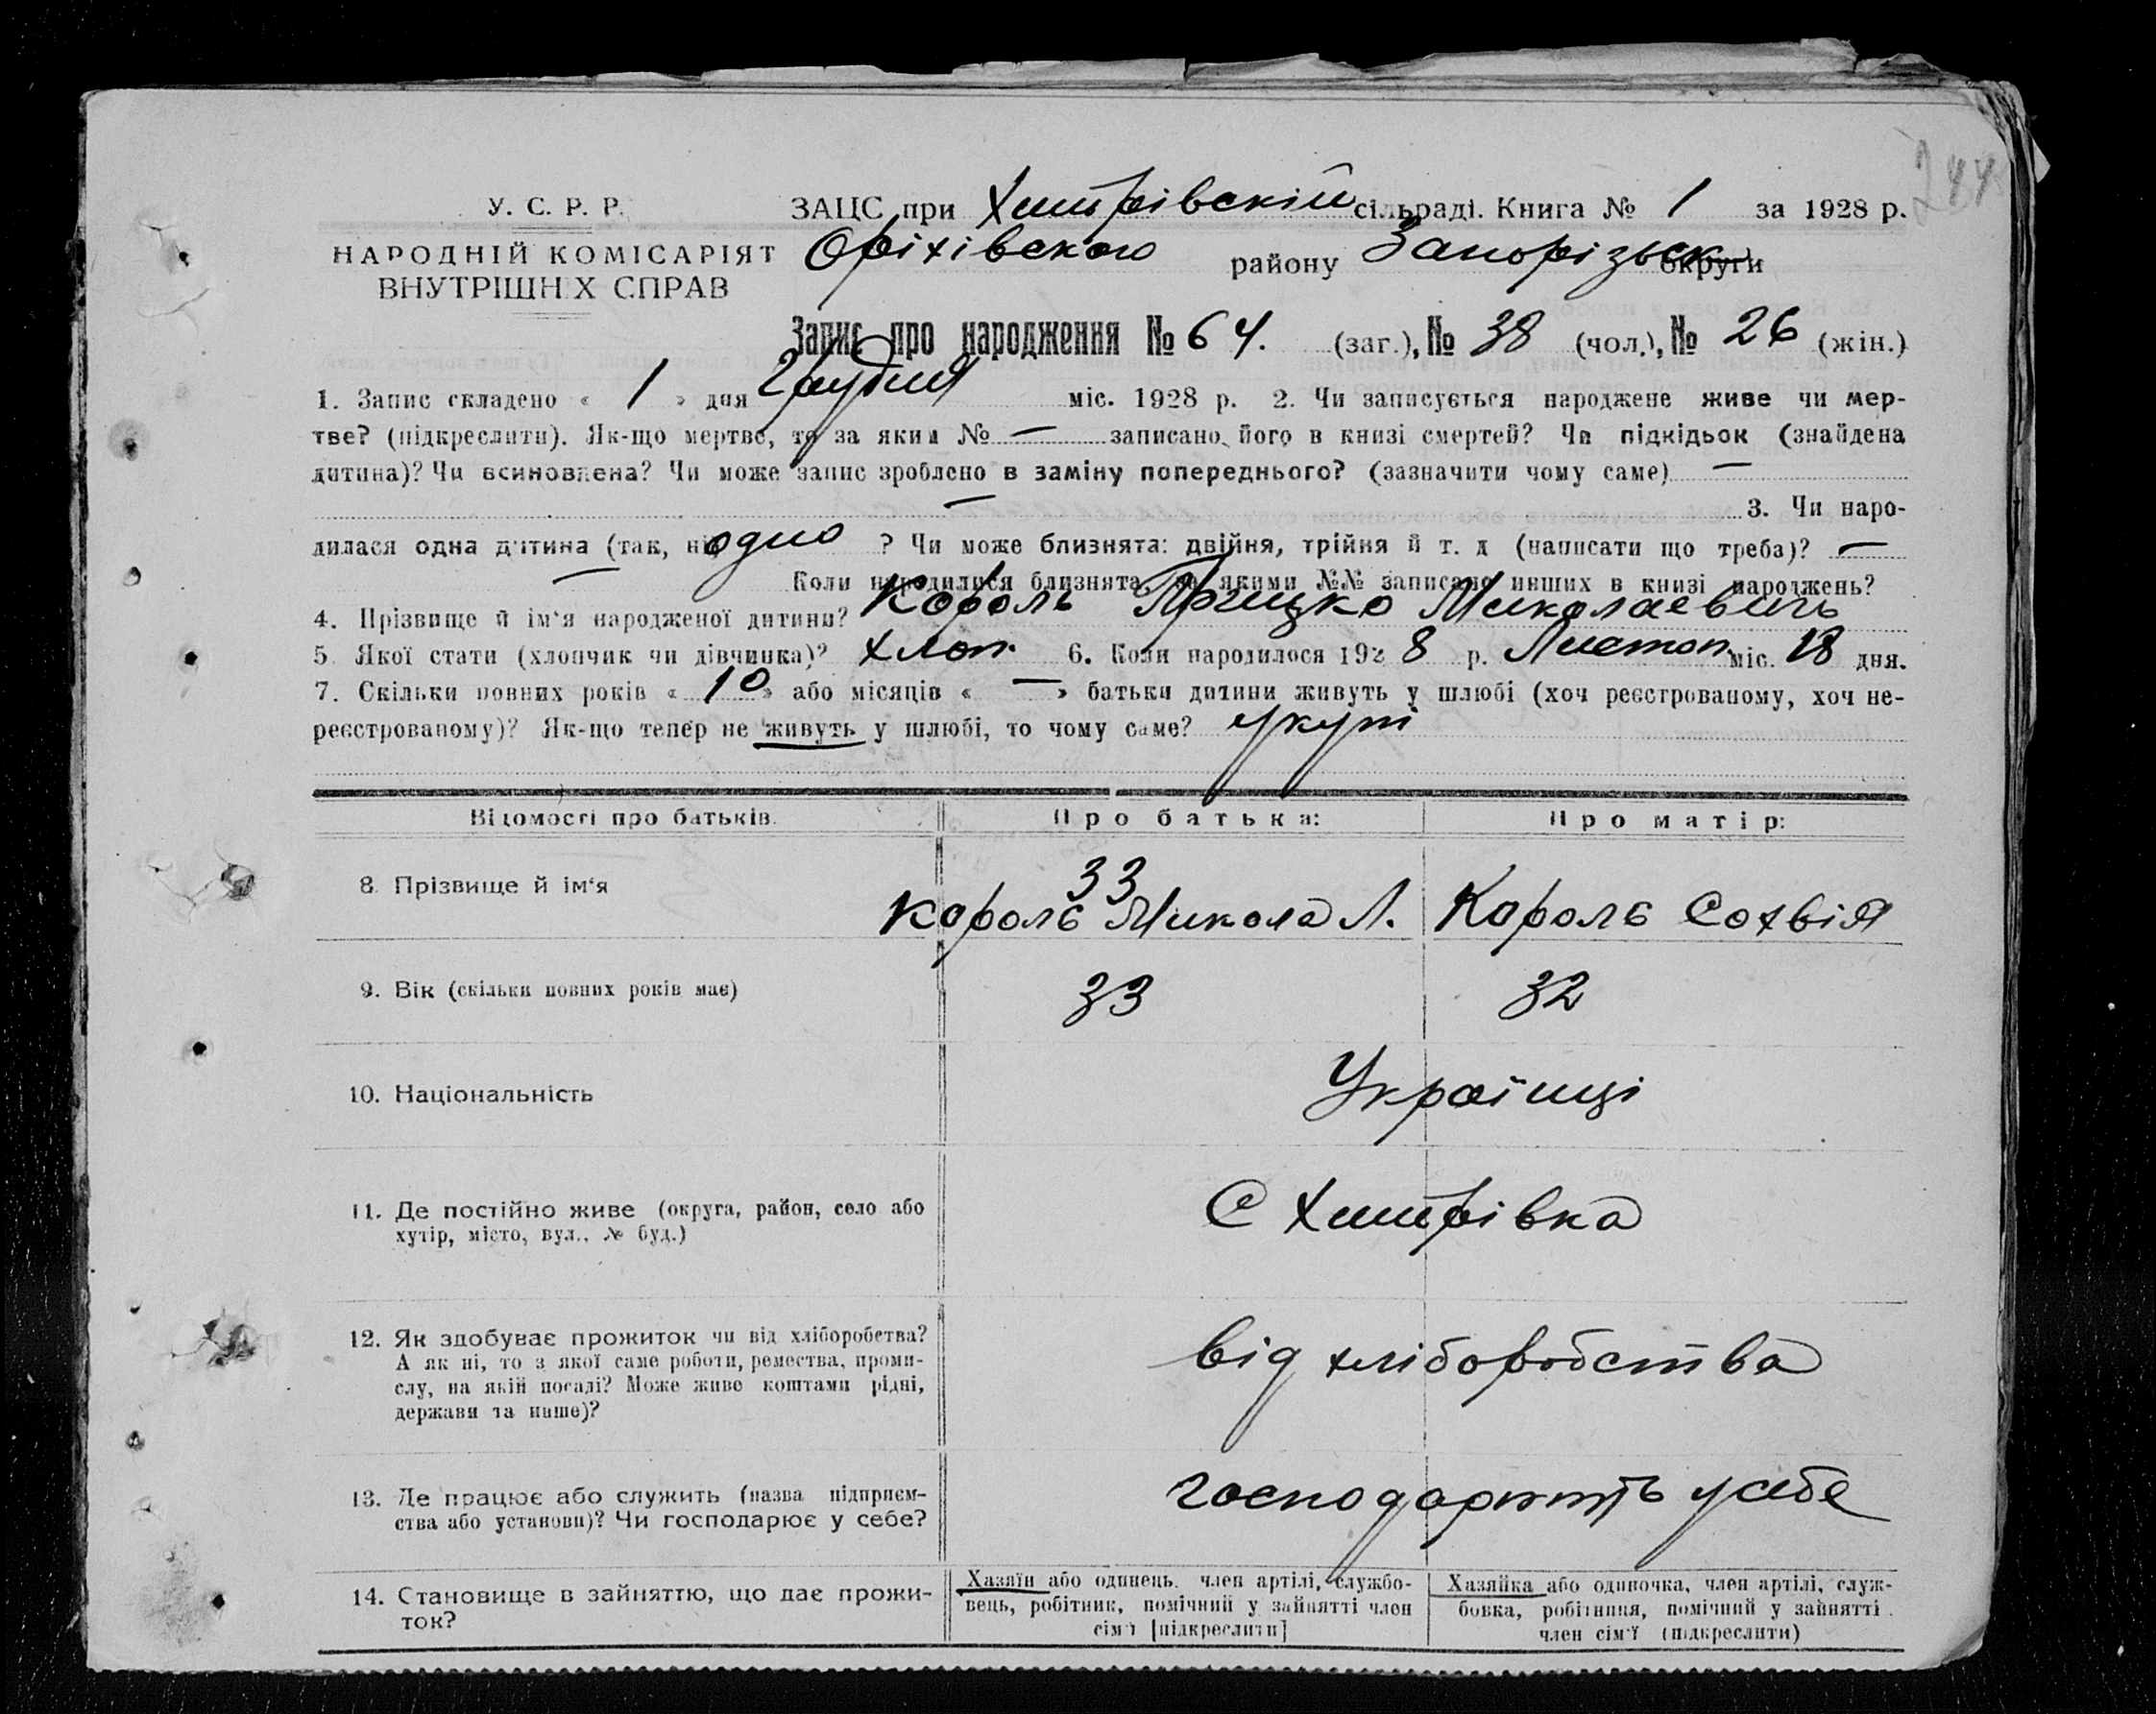 244
У. С. Р. Р.
ЗАЦС при Хитрівській сільраді. Книга № 1 за 1928 р.
НАРОДНІЙ КОМІСАРІЯТ
ВНУТРІШН Х СПРАВ
Оріхівського району Запорізьк округи
Запис про народження № 64. (заг.), № 38 (чол.), № 26 (жін.)
1. Запис складено « 1 » дня Грудня міс. 1928 р. 2. Чи записується народжене живе чи мер-
тве? (підкреслити). Як-що мертве, то за яким № — записано його в книзі смертей? Чи підкідьок (знайдена
дитина)? Чи всиновлена? Чи може запис зроблено в заміну попереднього? (зазначити чому саме) —
— 3. Чи наро-
дилася одна дитина (так, ні) одно ? Чи може близнята: двійня, трійня й т. д (написати що треба)? —
— Коли народилися близнята, за якими №№ записано инших в книзі народжень?
4. Прізвище й ім'я народженої дитини? Король Грицько Миколаевичь
5. Якої стати (хлопчик чи дівчинка)? хлоп. 6. Коли народилося 192 8 р. Листоп. міс. 18 дня.
7. Скільки повних років « 10 » або місяців « — » батьки дитини живуть у шлюбі (хоч реєстрованому, хоч не-
реєстрованому)? Як-що тепер не живуть у шлюбі, то чому саме? укупі
Відомості про батьків.
Про батька:
Про матір:
8. Прізвище й ім'я
33
Король Микола Л.
Король Сохвія
9. Вік (скільки повних років має)
33
32
10. Національність
Українці
11. Де постійно живе (округа, район, село або
хутір, місто, вул., № буд.)
С Хитрівка
12. Як здобуває прожиток чи від хліборобства?
А як ні, то з якої саме роботи, ремества, проми-
слу, на якій посаді? Може живе коштами рідні,
держави та инше)?
від хліборобства
13. Де працює або служить (назва підприєм-
ства або установи)? Чи господарює у себе?
господарють у себе
14. Становище в зайняттю, що дає прожи-
ток?
Хазяїн або одинець, член артілі, службо-
вець, робітник, помічний у зайнятті член
сім'ї [підкреслити]
Хазяйка або одиночка, член артілі, служ-
бовка, робітниця, помічний у зайнятті
член сім'ї (підкреслити)